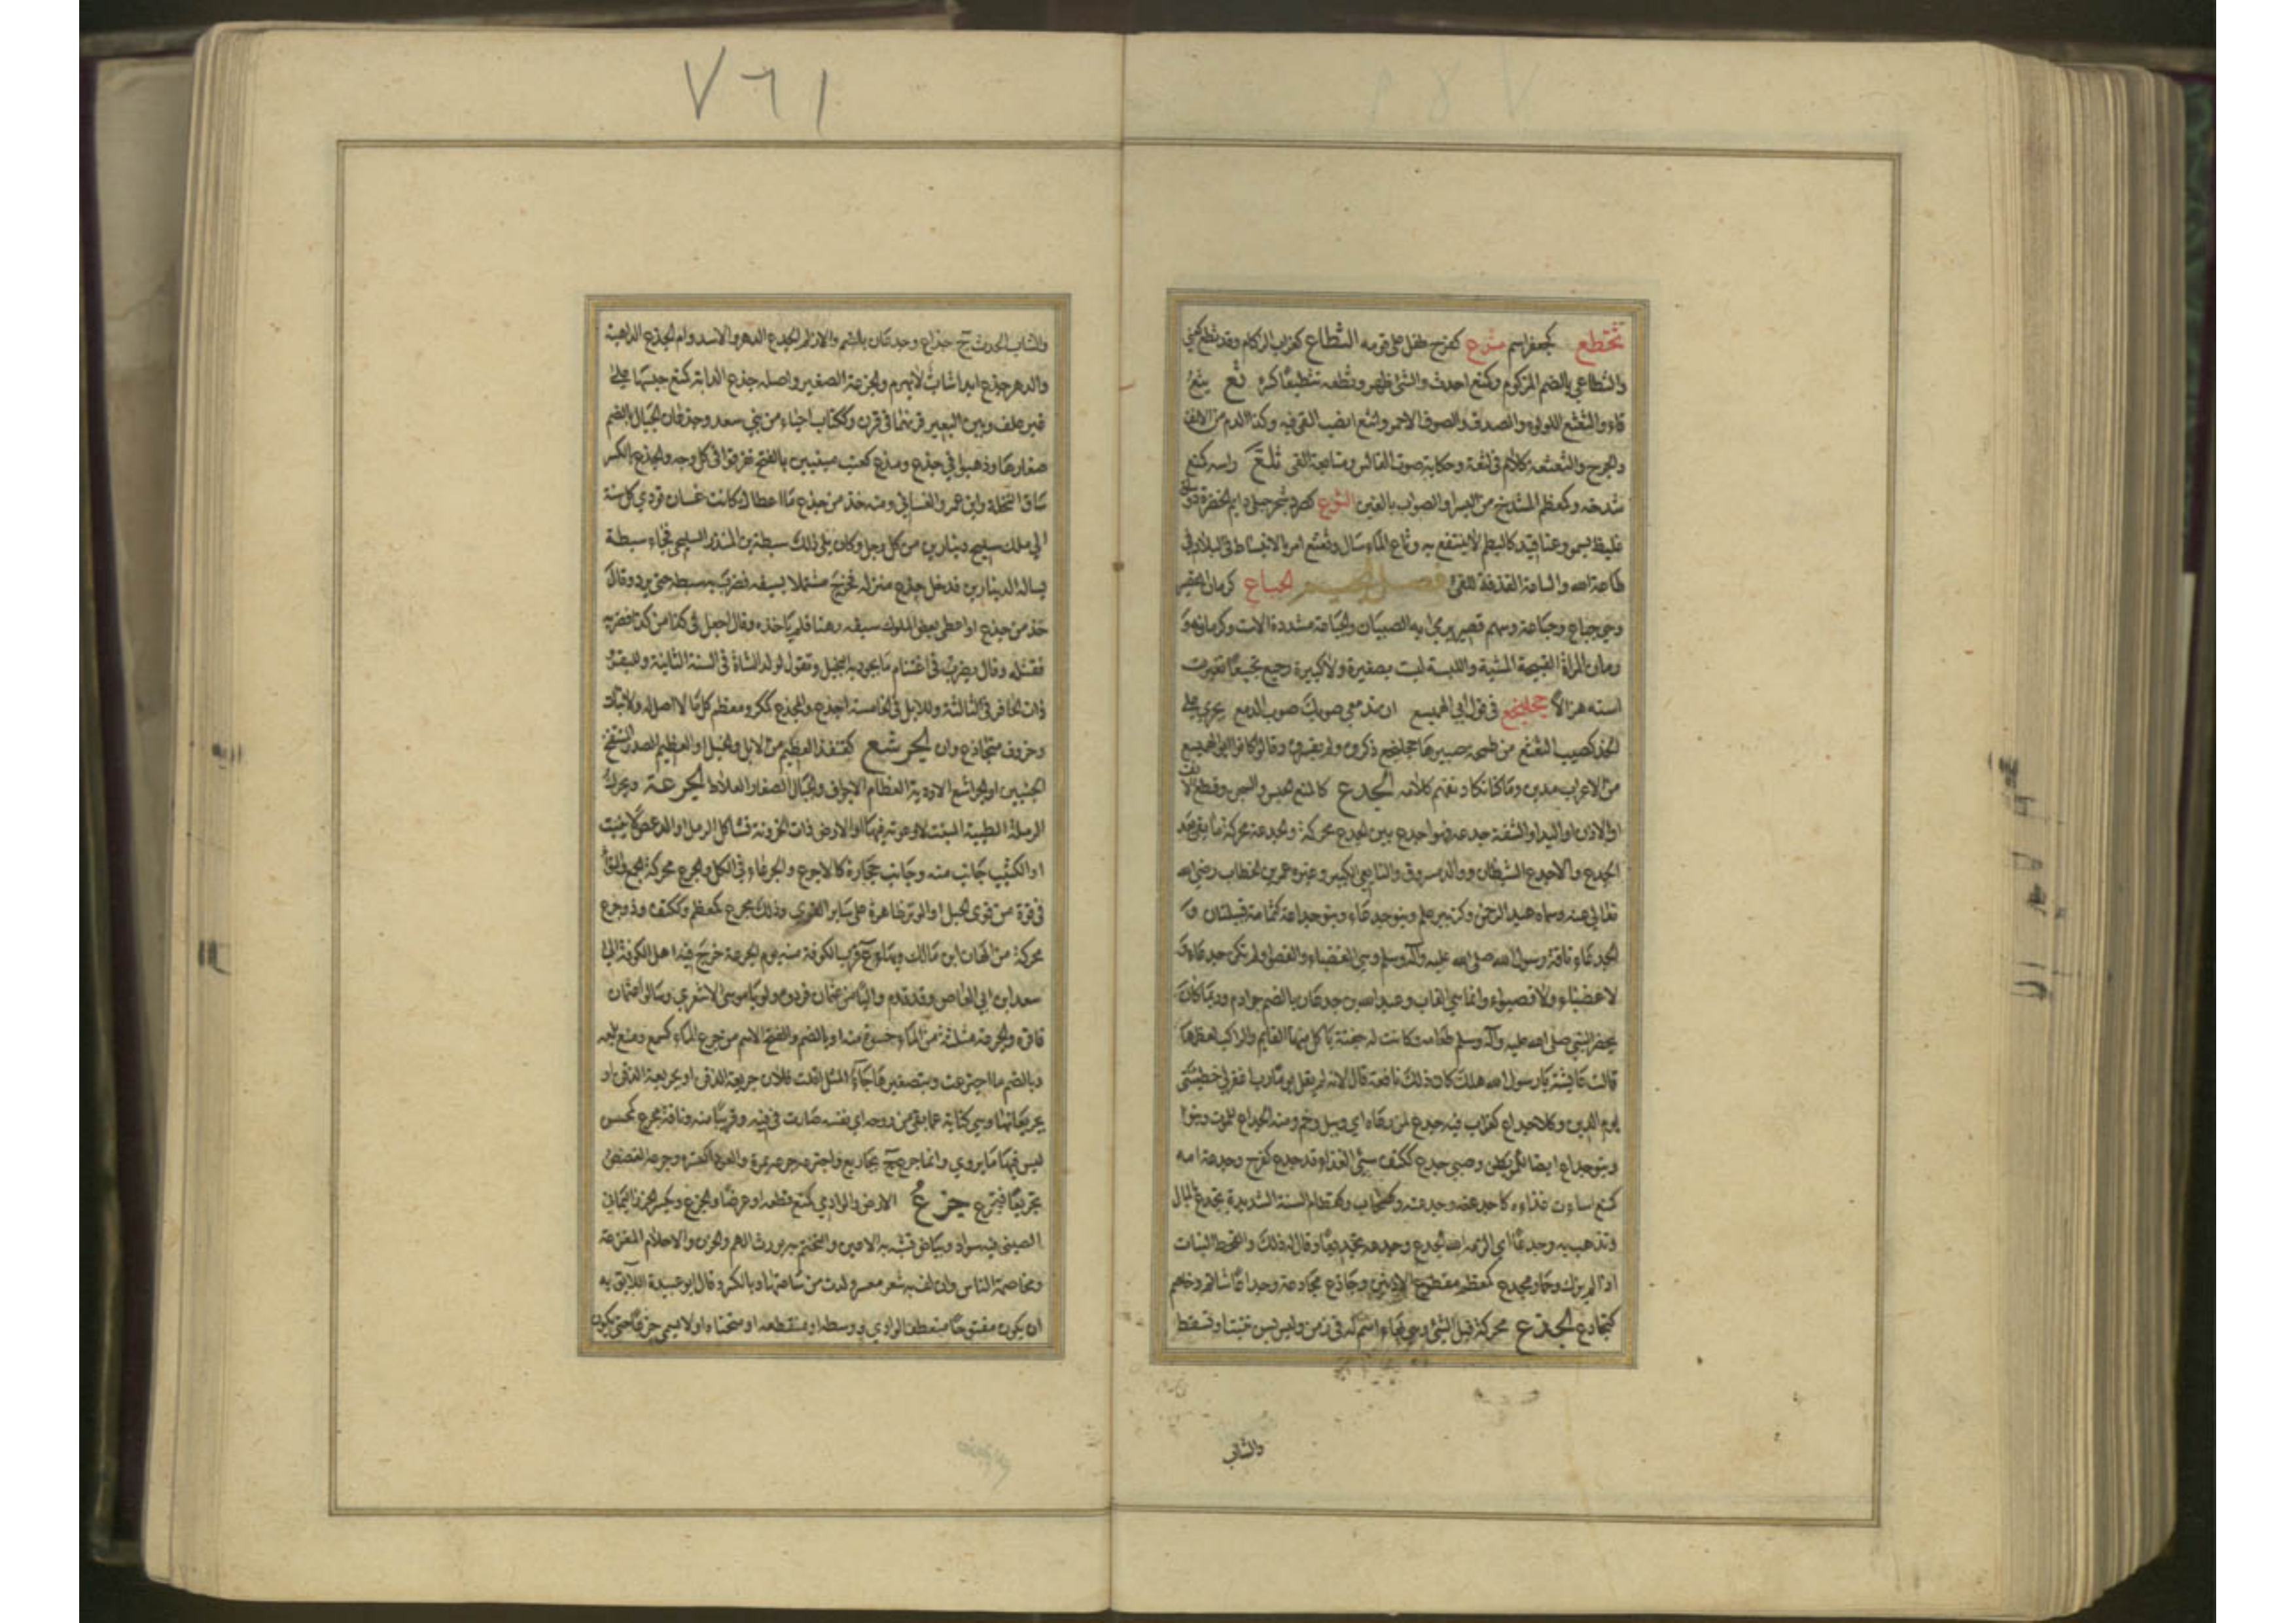 ٧٦١
ثخطع كجعفر اسم ثرع كفرح طفل على قومه الثطاع كغراب الزكام وقد ثطع كعني
والثطاعي بالضم المزكوم وكمنع احدث والشئ ظهر وثطعه تثطيعا كسره ثع يثع
قاء والثعثع اللولوء والصدف والصوف الاحمر وانثع انصب القئ فيه وكذا الدم من الانف
والجرح والثعثعة كلام فيه لثغة وحكاية صوت القالس ومتابعة القئ ثلغ راسه كمنع
شدخه وكمعظم المشدخ من البسر او الصواب بالغين الثوع كصرد شجر جبلي دايم الخضرة ذو ساق
غليظ يسمو وعناقيد كالبطم لا ينتفع به وثاع الماء سال وثع ثع امر بالانبساط في البلاد في
طاعة الله والثاعة القذفة للقئ فصل الجيم الجباع كرمان القصير
وهي جباع وجباعة وسهم قصير يرمي به الصبيان والجباعة مشددة الاست وكرمانة و
ورمان المراة القبيحة المشية واللبسة ليست بصغيرة ولا كبيرة وجبع تجبيعا تغيرت
استه هزالا جحلنجع في قول ابي الهميسع ان تمنعي صوبك صوب المدمع يجري على
الخد كضيب الثعثع من طمحة صبيرها جحلنجع ذكروه ولم يفسروه وقالوا كان ابو الهميسع
من الاعراب مدين وما كنا نكاد نفهم كلامه الجدع كالمنع الحبس والسجن وقطع الانف
او الاذن او اليد او الشفة جدعه فهو اجدع بين الجدع محركة والجدعة محركة ما بقي بعد
الجدع والاجدع الشيطان ووالد مسروق والتابعي الكبير وغيره عمر بن الخطاب رضي الله
تعالى عنه وسماه عبد الرحمن وكزبير علم وبنو جدعاء وبنو جداعة كثمامة قبيلتان و
الجدعاء ناقة رسول الله صلى الله عليه وآله وسلم وهي العضباء والقصوا ولم تكن جدعاء و
لا عضباء ولا قصواء وانما هي القاب وعبد الله بن جدعان بالضم جواد م وربما كان
يحضر النبي صلى الله عليه وآله وسلم طعامه وكانت له جفنة ياكل منها القايم والراكب لعظمها
قالت عايشة يا رسول الله هل كان ذلك نافعه قال لا انه لم يقل يوما رب اغفر لي خطيئتي
يوم الدين وكلا جداع كغراب فيه جدع لمن رعاه اي وبيل وخم ومنه الجداع للموت وبنو
وبنو جداع ايضا بطن وصبي جدع ككتف سيئ الغذاء وقد جدع كفرح وجدعته امه
كمنع اساءت غذاءه كاجدعته وجدعته وكسحاب وكقطام السنة الشديدة تجدع المال
وتذهب به وجدعا اي الزمه الله الجدع وجدعه تجديعا وقال له ذلك والقحط النبات
اذا لم يزك وحمار مجدع كمعظم مقطوع الاذنين وجادع مجادعة وجداعا شاتم وخاصم
كتجادع الجذع محركة قبل الثني وهي بهاء اسم له في زمن وليس بسن تنبت او تسقط
والشاب
والشاب الحدث ج جذاع وجذعان بالضم والازلم الجذع الدهر والاسد وام الجذع الداهية
والدهر جذع ابدا شاب لا يهرم والجزعة الصغير واصله جذع الدابة كمنع حبسها على
غير علف وبين البعيرين قرنهما في قرن وككتاب احياء من بني سعد وجذعان الجبال بالضم
صغارها وذهبوا في جذع ومذع كعنب مبنيين بالفتح تفرقوا في كل وجه والجذع بالكسر
ساق النخلة وابن عمرو الغساني ومنه خذ من جذع ما اعطاك كانت غسان تودي كل سنة
الى ملك سليح دينارين من كل رجل وكان يلي ذلك سبطة بن المنذر السليحي فجاء سبطة
يساله الدينارين فدخل جذع منزله فخرج مشتملا بسيفه فضرب به سبطة حتى برد وقال
خذ من جذع او اعطى بعض الملوك سيفه رهنا فلم ياخذه وقال اجعل في كذا من كذا فضربه
فقتله وقال يضرب في اغتنام ما يجود به البخيل وتقول لولد الشاة في السنة الثانية وللبقر و
ذوات الحافر في الثالثة وللابل في الخامسة اجذع والمجذع كمكرم ومعظم كل ما لا اصل له ولا ثبات
وخروف متجاذع وان الجرشع كقنفذ العظيم من الابل والخيل او العظيم الصدر المنتفخ
الجنبين او الجراشع الاودية العظام الاجواف والجبال الصغار الغلاظ الجرعة ويحرك
الرملة الطيبة المنبت لا وعوثة فيها او الارض ذات الحزونة تشاكل الرمل او الدعص لا ينبت
او الكثيب جانب منه وجانب حجارة كالاجرع والجرعاء في الكل والجرع محركة الجمع والتواء
في قوة من قوى الحبل او الوتر ظاهرة على سائر القوى وذلك مجرع كمعظم وككتف وذو جرع
محركة من الهان ابن مالك وبها ع قرب الكوفة منه يوم الجرعة خرج فيه اهل الكوفة الى
سعد ابن ابي العاص وقد قدم واليا من عثمان فردوه ولو ابا موسى الاشعري وسالوا عثمان
فاقره والجرعة مثلثة من الماء حسوة منه او بالضم والفتح الاسم من جرع الماء كسمع ومنع بلعه
وبالضم ما اجترعت وبتصغيرها جاء المثل افلت فلان جريعة الذقن او بجريعة الذقن او
بجريعائها وهي كناية عما بقي من روحه اي نفسه صارت في فيه وقريبا منه وناقة مجرع كمحسن
ليس فيها ما يروي وانما جرع ج مجاريع واجترعه جرعه بمرة والعود اكتسره وجرعه الغصص
تجريعا فتجرع جزع الارض والوادي كمنع قطعه او عرضا والجزع ويكسر الخرز اليماني
الصيني فيه سواد وبياض تشبه به الاعين والتختم به يورث الهم والحزن والاحلام المفزعة
ومخاصمة الناس وان لف به شعر معسر ولدت من ساعتها وبالكسر وقال ابو عبيدة اللايق به
ان يكون مفتوحا منعطف الوادي او وسطه او منقطعه او منحناه او لا يسمى جزعا حتى يكون